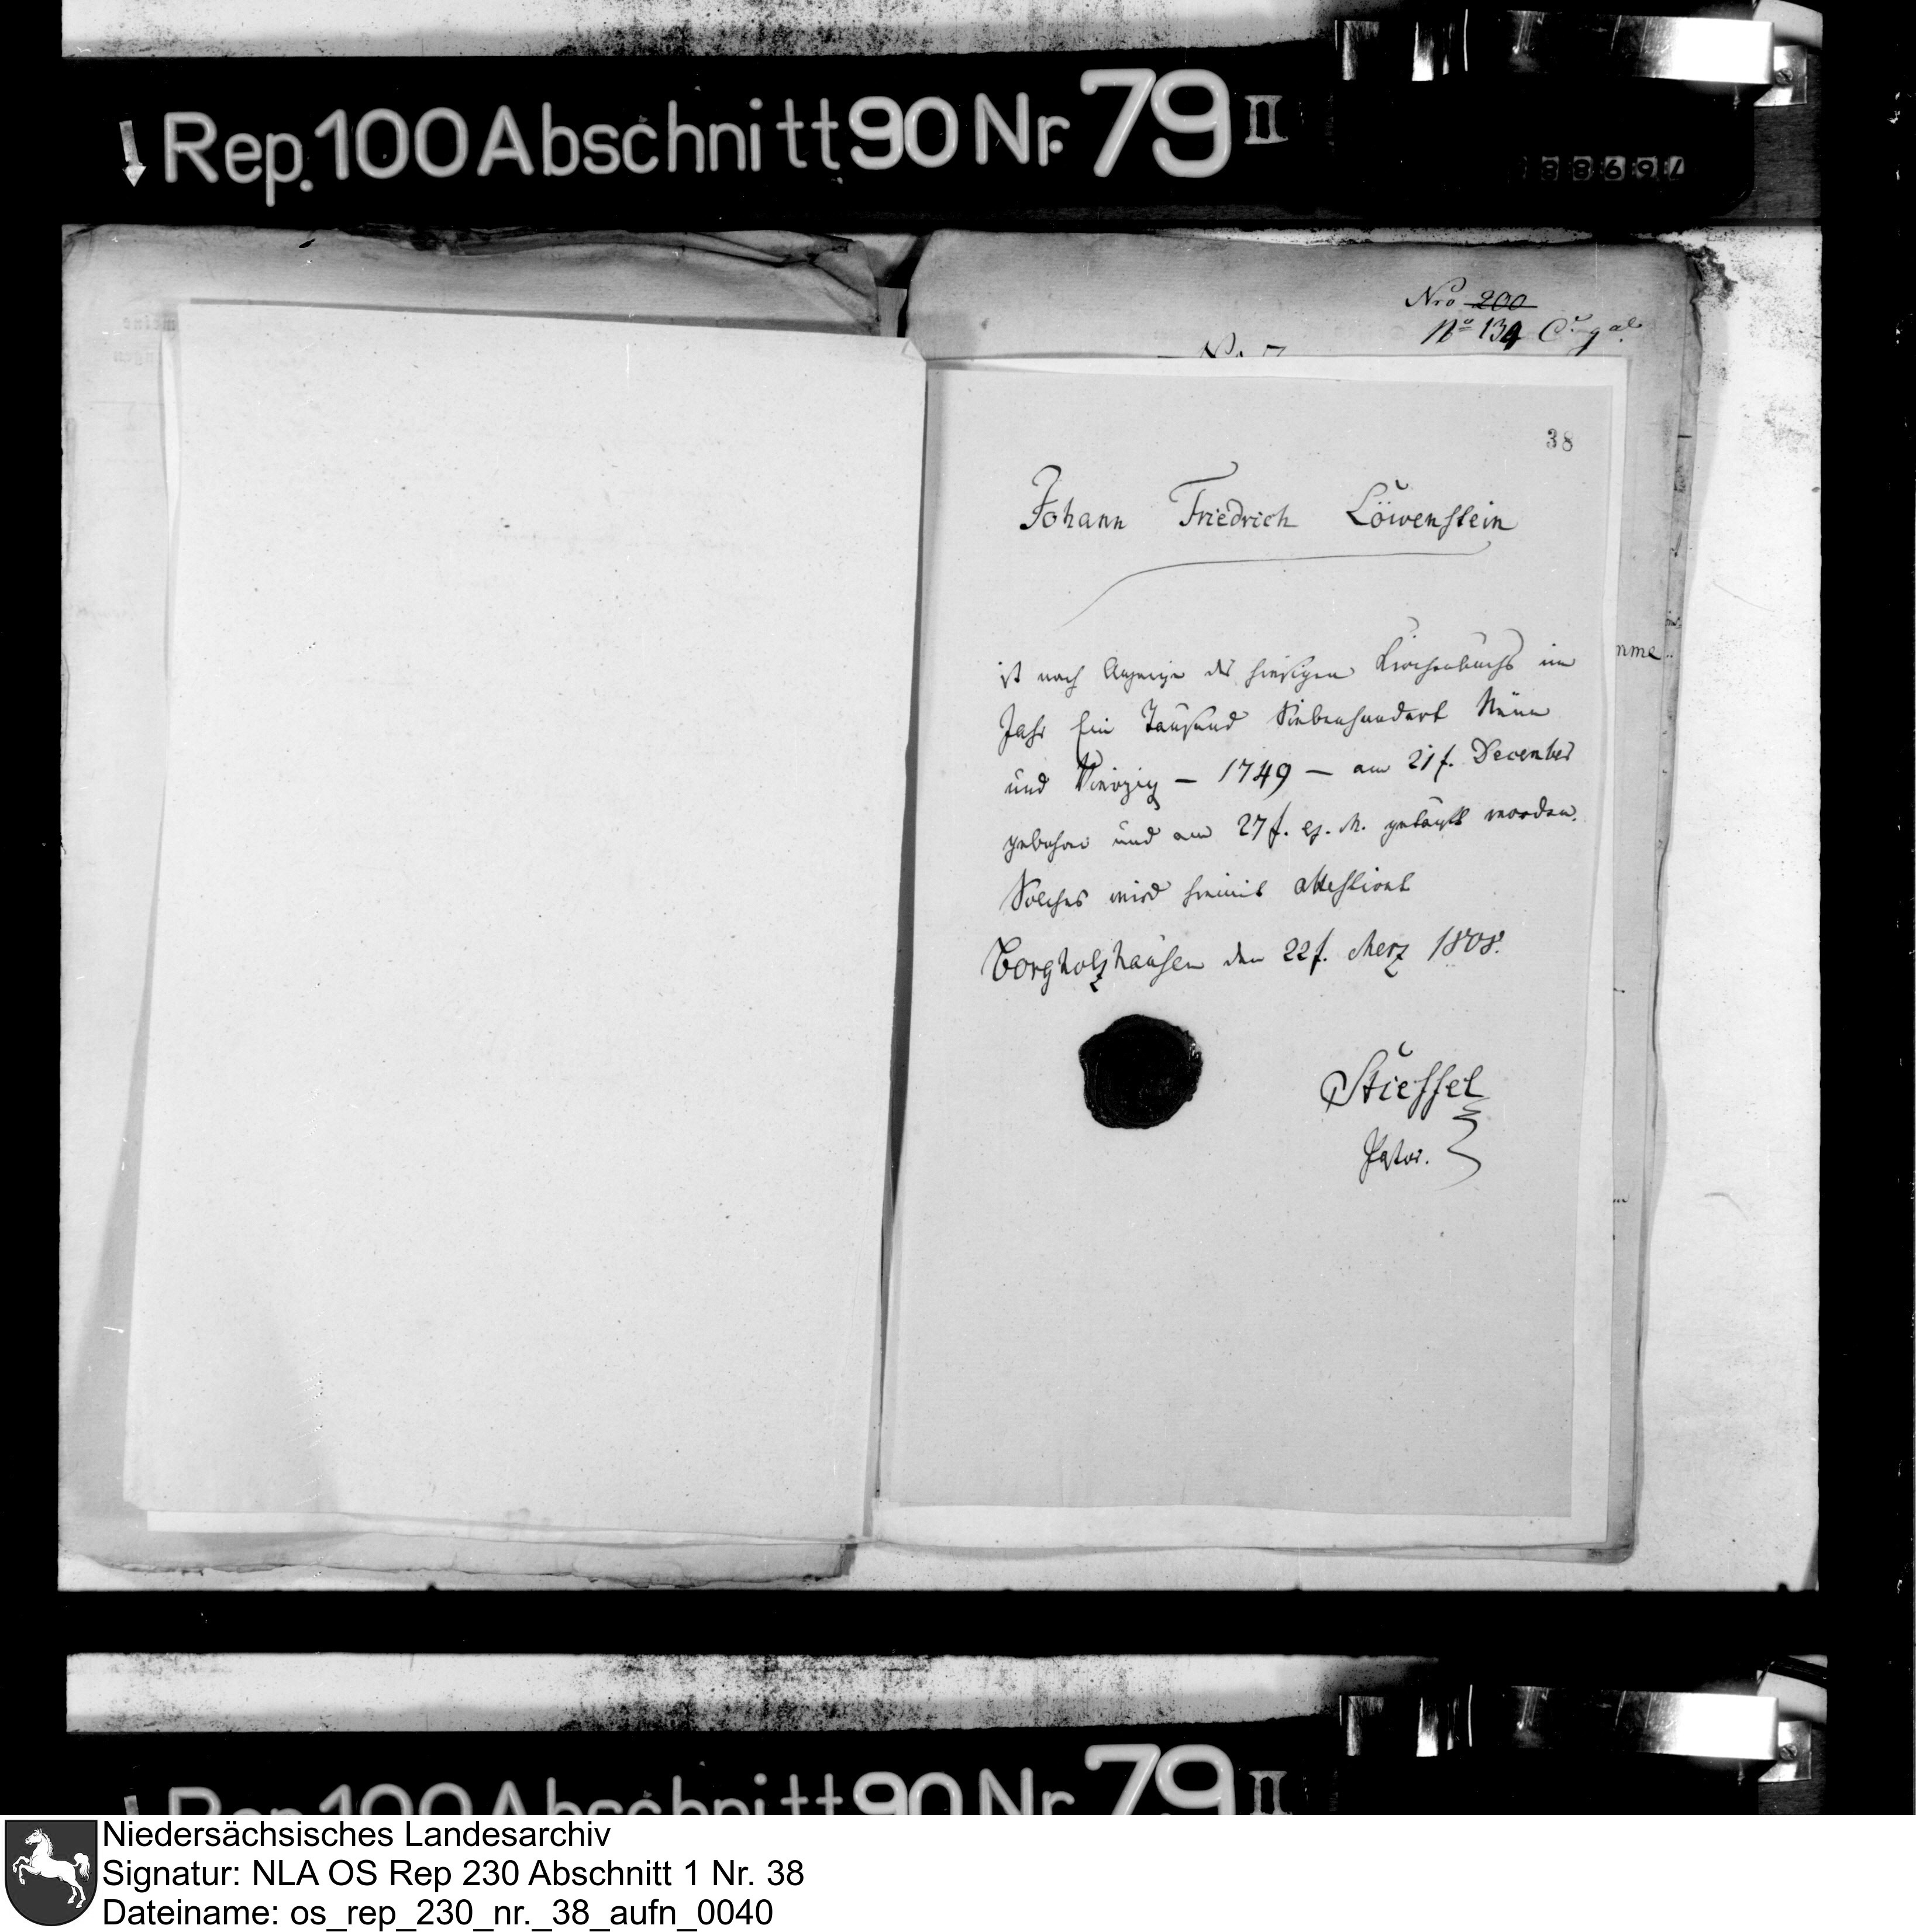 Rep. 100 Abschnitt 90 Nr. 79 II
8869
Nro 200
No 134
38
Johann Friedrich Löwenstein
ist nach Anzeige des hiesigen Kirchenbuchs im
Jahr Ein Tausend Siebenhundert Neun
und Vierzig – 1749 – am 21t. December
gebohren und am 27t. ej. M. getauft worden.
Solches wird hiemit attestirt
Borgholzhausen den 22t. Merz 1808.
Stieffel
Pastor.
nme
Rep. 100 Abschnitt 90 Nr. 79 II
Niedersächsisches Landesarchiv
Signatur: NLA OS Rep 230 Abschnitt 1 Nr. 38
Dateiname: os_rep_230_nr._38_aufn_0040